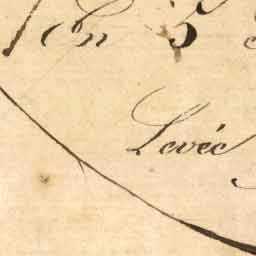 En 5
Levée